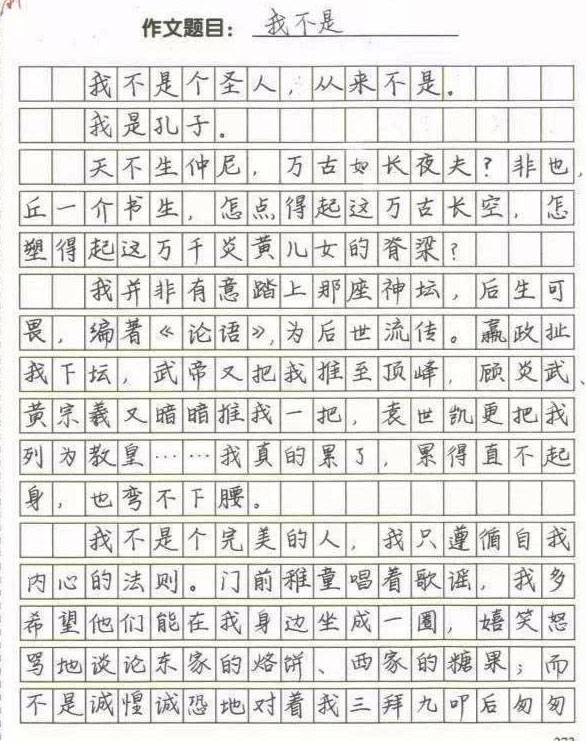 作文题目：我不是
我不是个圣人，从来不是。
我是孔子。
天不生仲尼，万古如长夜夫？非也，
丘一介书生，怎点得起这万古长空，怎
塑得起这万千炎黄儿女的脊梁？
我并非有意踏上那座神坛，后生可
畏，编著《论语》，为后世流传。嬴政扯
我下坛，武帝又把我推至顶峰，顾炎武、
黄宗羲又暗暗推我一把，袁世凯更把我
列为教皇……我真的累了，累得直不起
身，也弯不下腰。
我不是个完美的人，我只遵循自我
内心的法则。门前稚童唱着歌谣，我多
希望他们能在我身边坐成一圈，嬉笑怒
骂地谈论东家的烙饼、西家的糖果；而
不是诚惶诚恐地对着我三拜九叩后匆匆